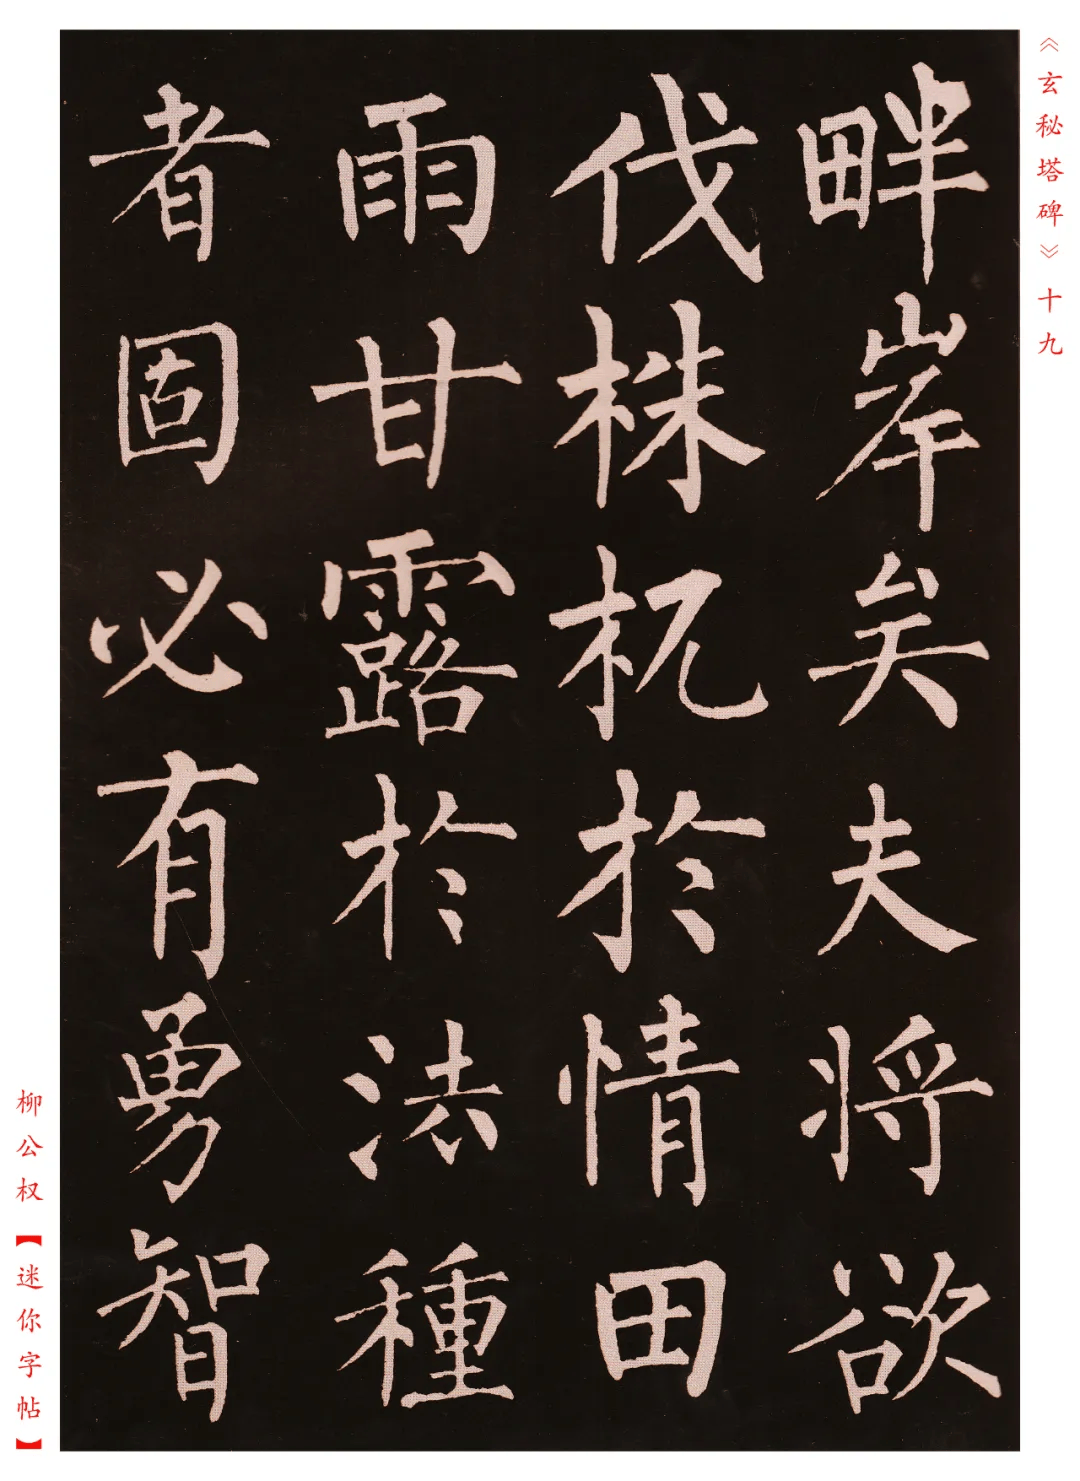 《玄秘塔碑》十九
畔岸矣夫将欲
伐株杌於情田
雨甘露於法種
者固必有勇智
柳公权【迷你字帖】